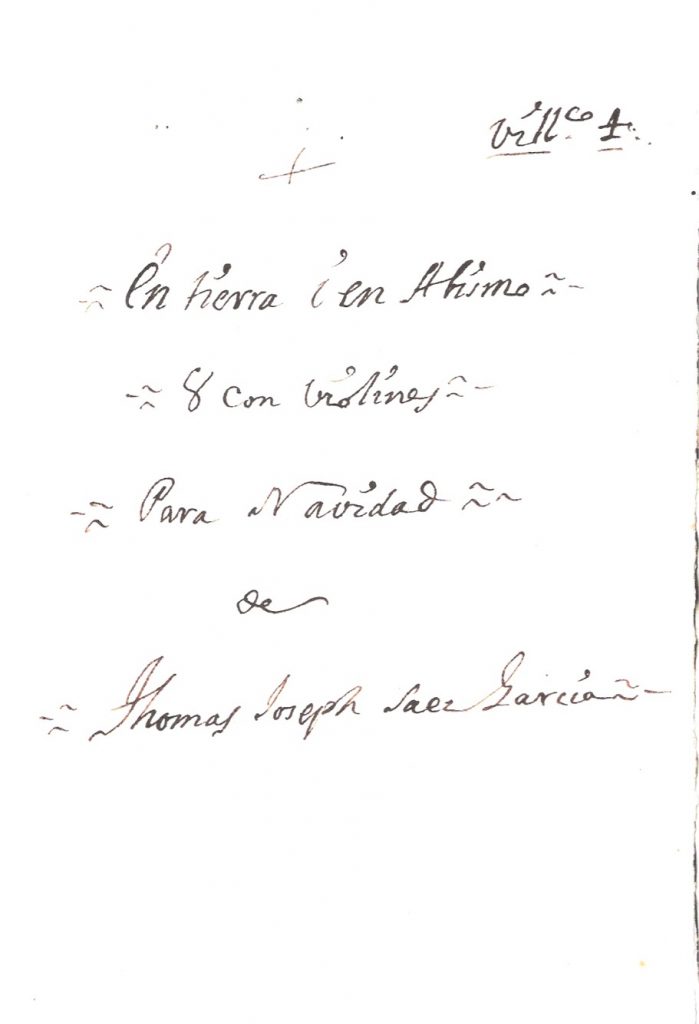 Vill.co 1.
En tierra i en Abismo
8 con violines
Para Navidad
de
Thomas Joseph Saez Garcia